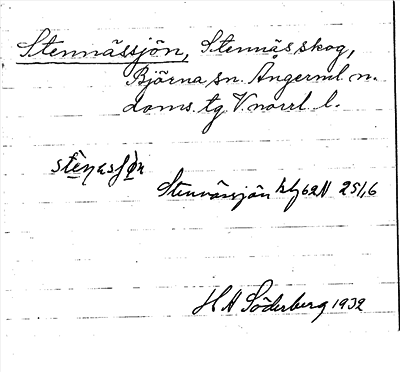 Stennässjön, Stennäs skog,
Björna sn. Ångerml. n.
doms. tg V. norrl. l.
Stennässjön 62N 251,6
H A Söderberg 1932